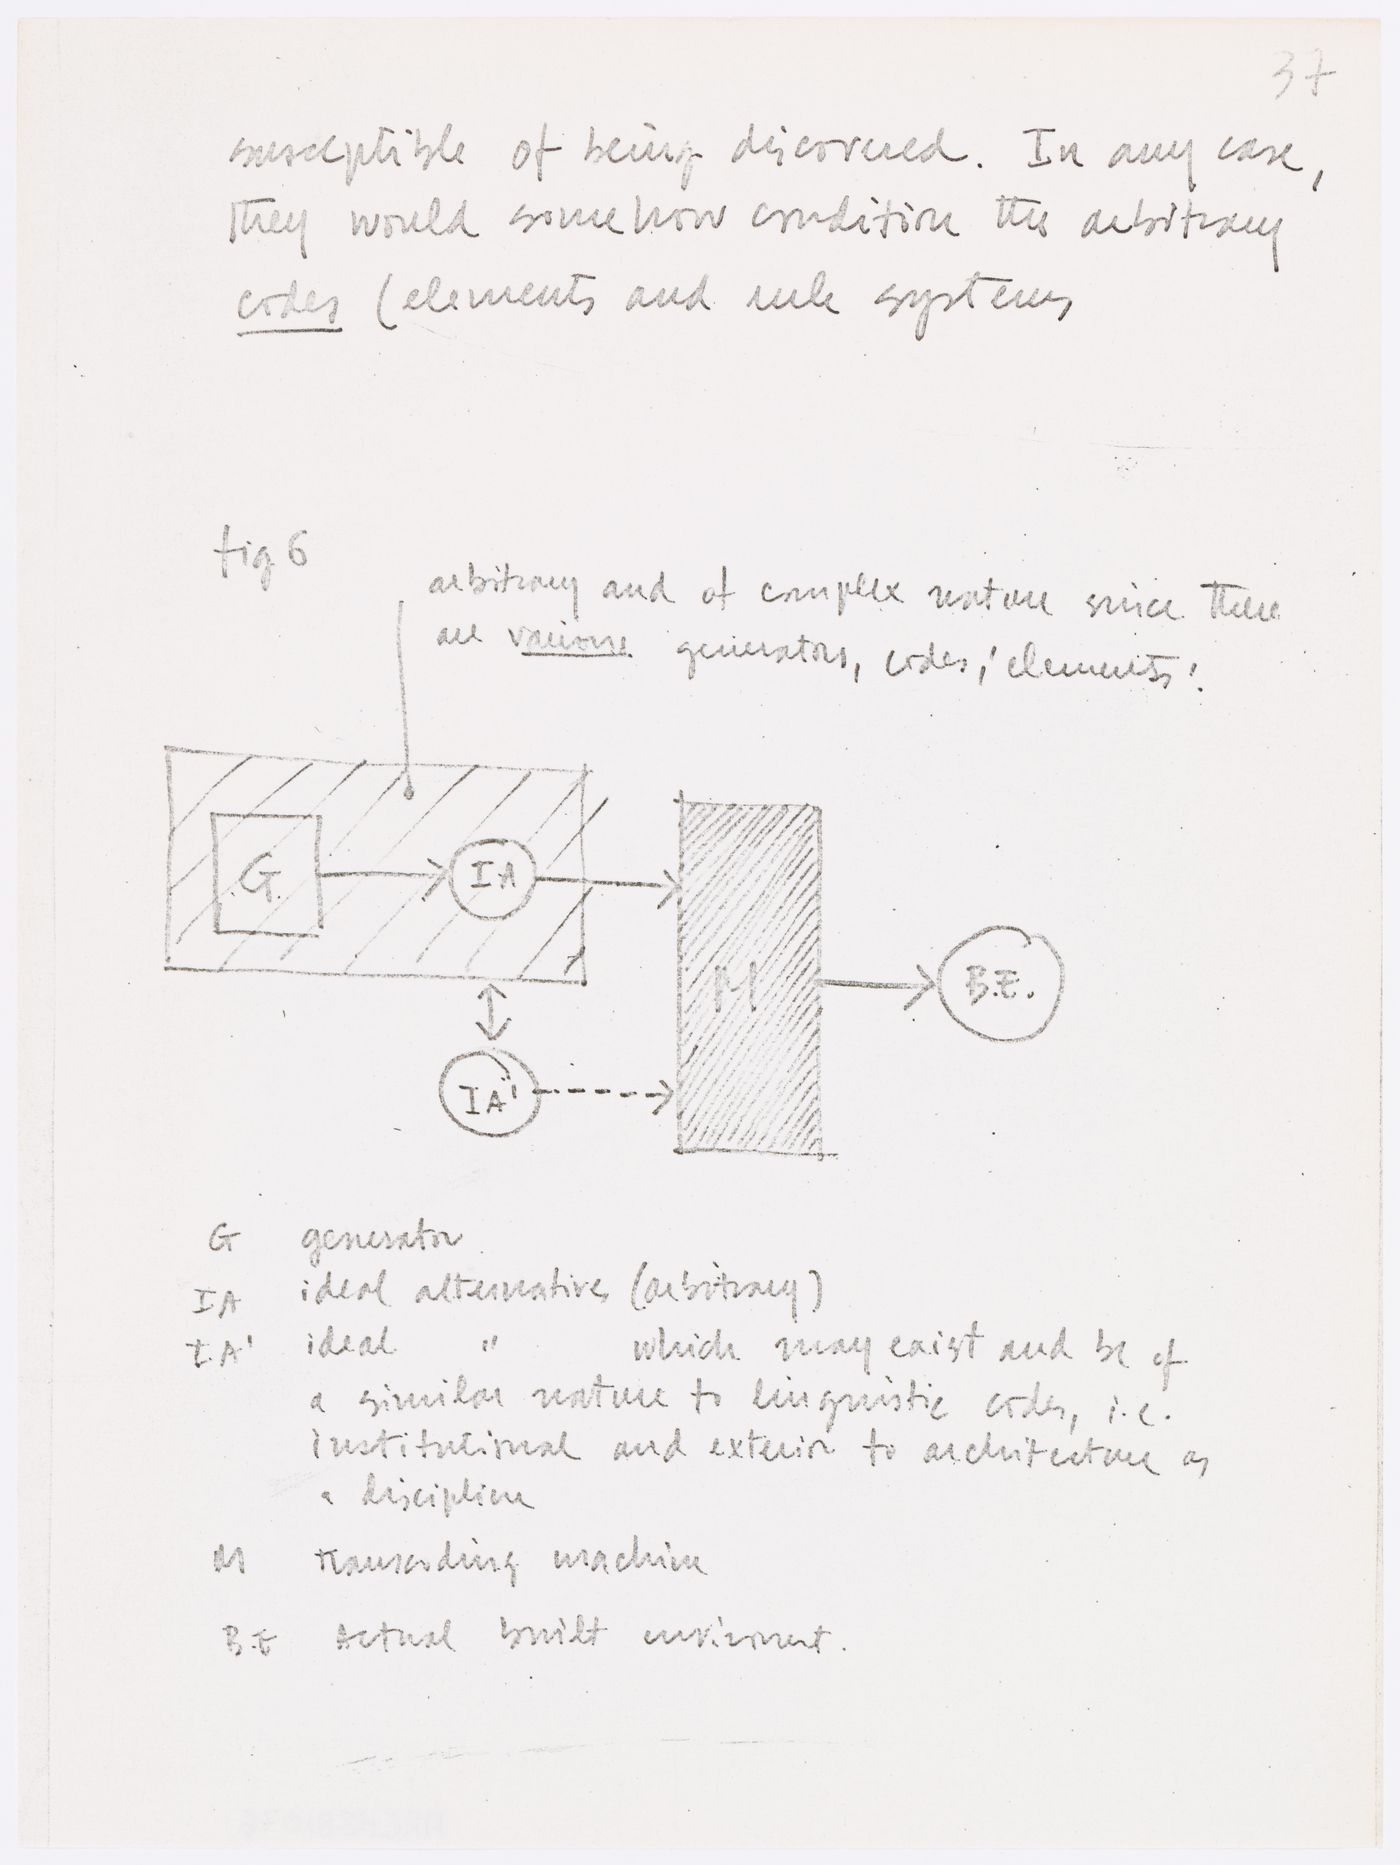 37
susceptible of being discovered. In any case,
they would somehow condition the arbitrary
codes (elements and rule systems
fig 6
arbitrary and of complex nature since there
are various generators, codes, 'elements'.
G
IA
M
B.E.
IA'
G generator
IA ideal alternatives (arbitrary)
I.A' ideal " which may exist and be of
a similar nature to linguistic codes, i.e.
institutional and exterior to architecture as
a discipline
M transcoding machine
B.E Actual built enviroment.